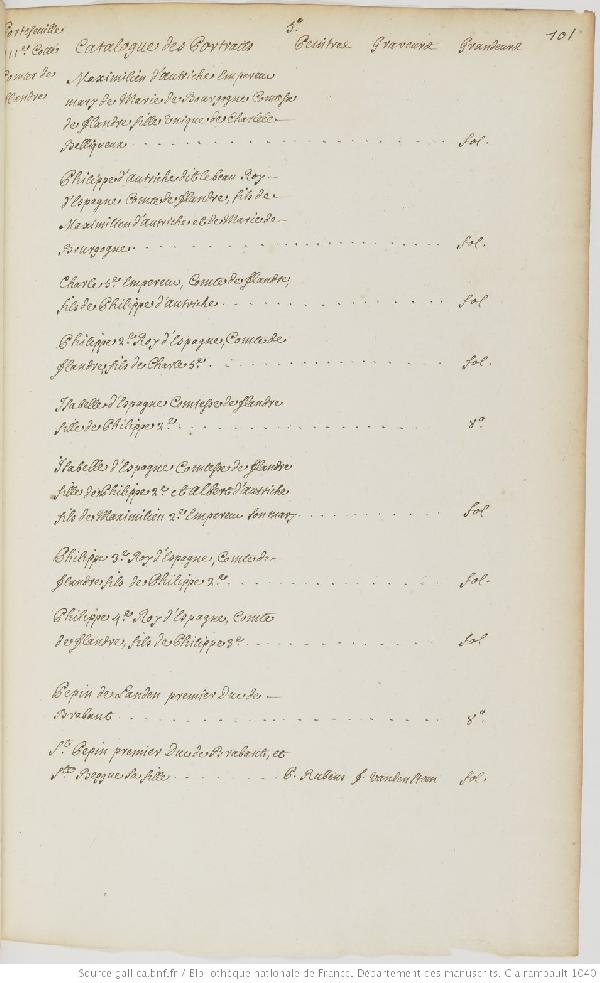 5e 101
Portefeuille
11e Cotté Catalogue des Portraits Peintres Graveurs Grandeurs
Comtes de
flandre
Maximilien d'autriche Empereur
mary de Marie de Bourgogne Comtesse
de flandre fille unique de Charles le
Belliqueux fol.
Philippe d'autriche dit le beau Roy
d'Espagne Comte de flandre, fils de
Maximilien d'autriche et de Marie de
Bourgogne fol.
Charle 5e Empereur, Comte de flandre,
fils de Philippe d'autriche fol
Philippe 2e Roy d'Espagne, Comte de
flandre, fils de Charle 5e fol.
Isabelle d'Espagne Comtesse de flandre
fille de Philippe 2e 8o
Isabelle d'Espagne Comtesse de flandre
fille de Philippe 2e et Albert d'autriche
fils de Maximilien 2e Empereur son mary fol
Philippe 3e Roy d'Espagne, Comte de
flandre fils de Philippe 2e fol.
Philippe 4e Roy d'Espagne, Comte
de flandre, fils de Philippe 3e fol
Pepin de Landen premier Duc de
Brabant 8o
St Pepin premier Duc de Brabant, et
Ste Beggue sa fille P. Rubens J. vandensteen fol.
Source gallica.bnf.fr / Bibliothèque nationale de France. Département des manuscrits. Clairambault 1040